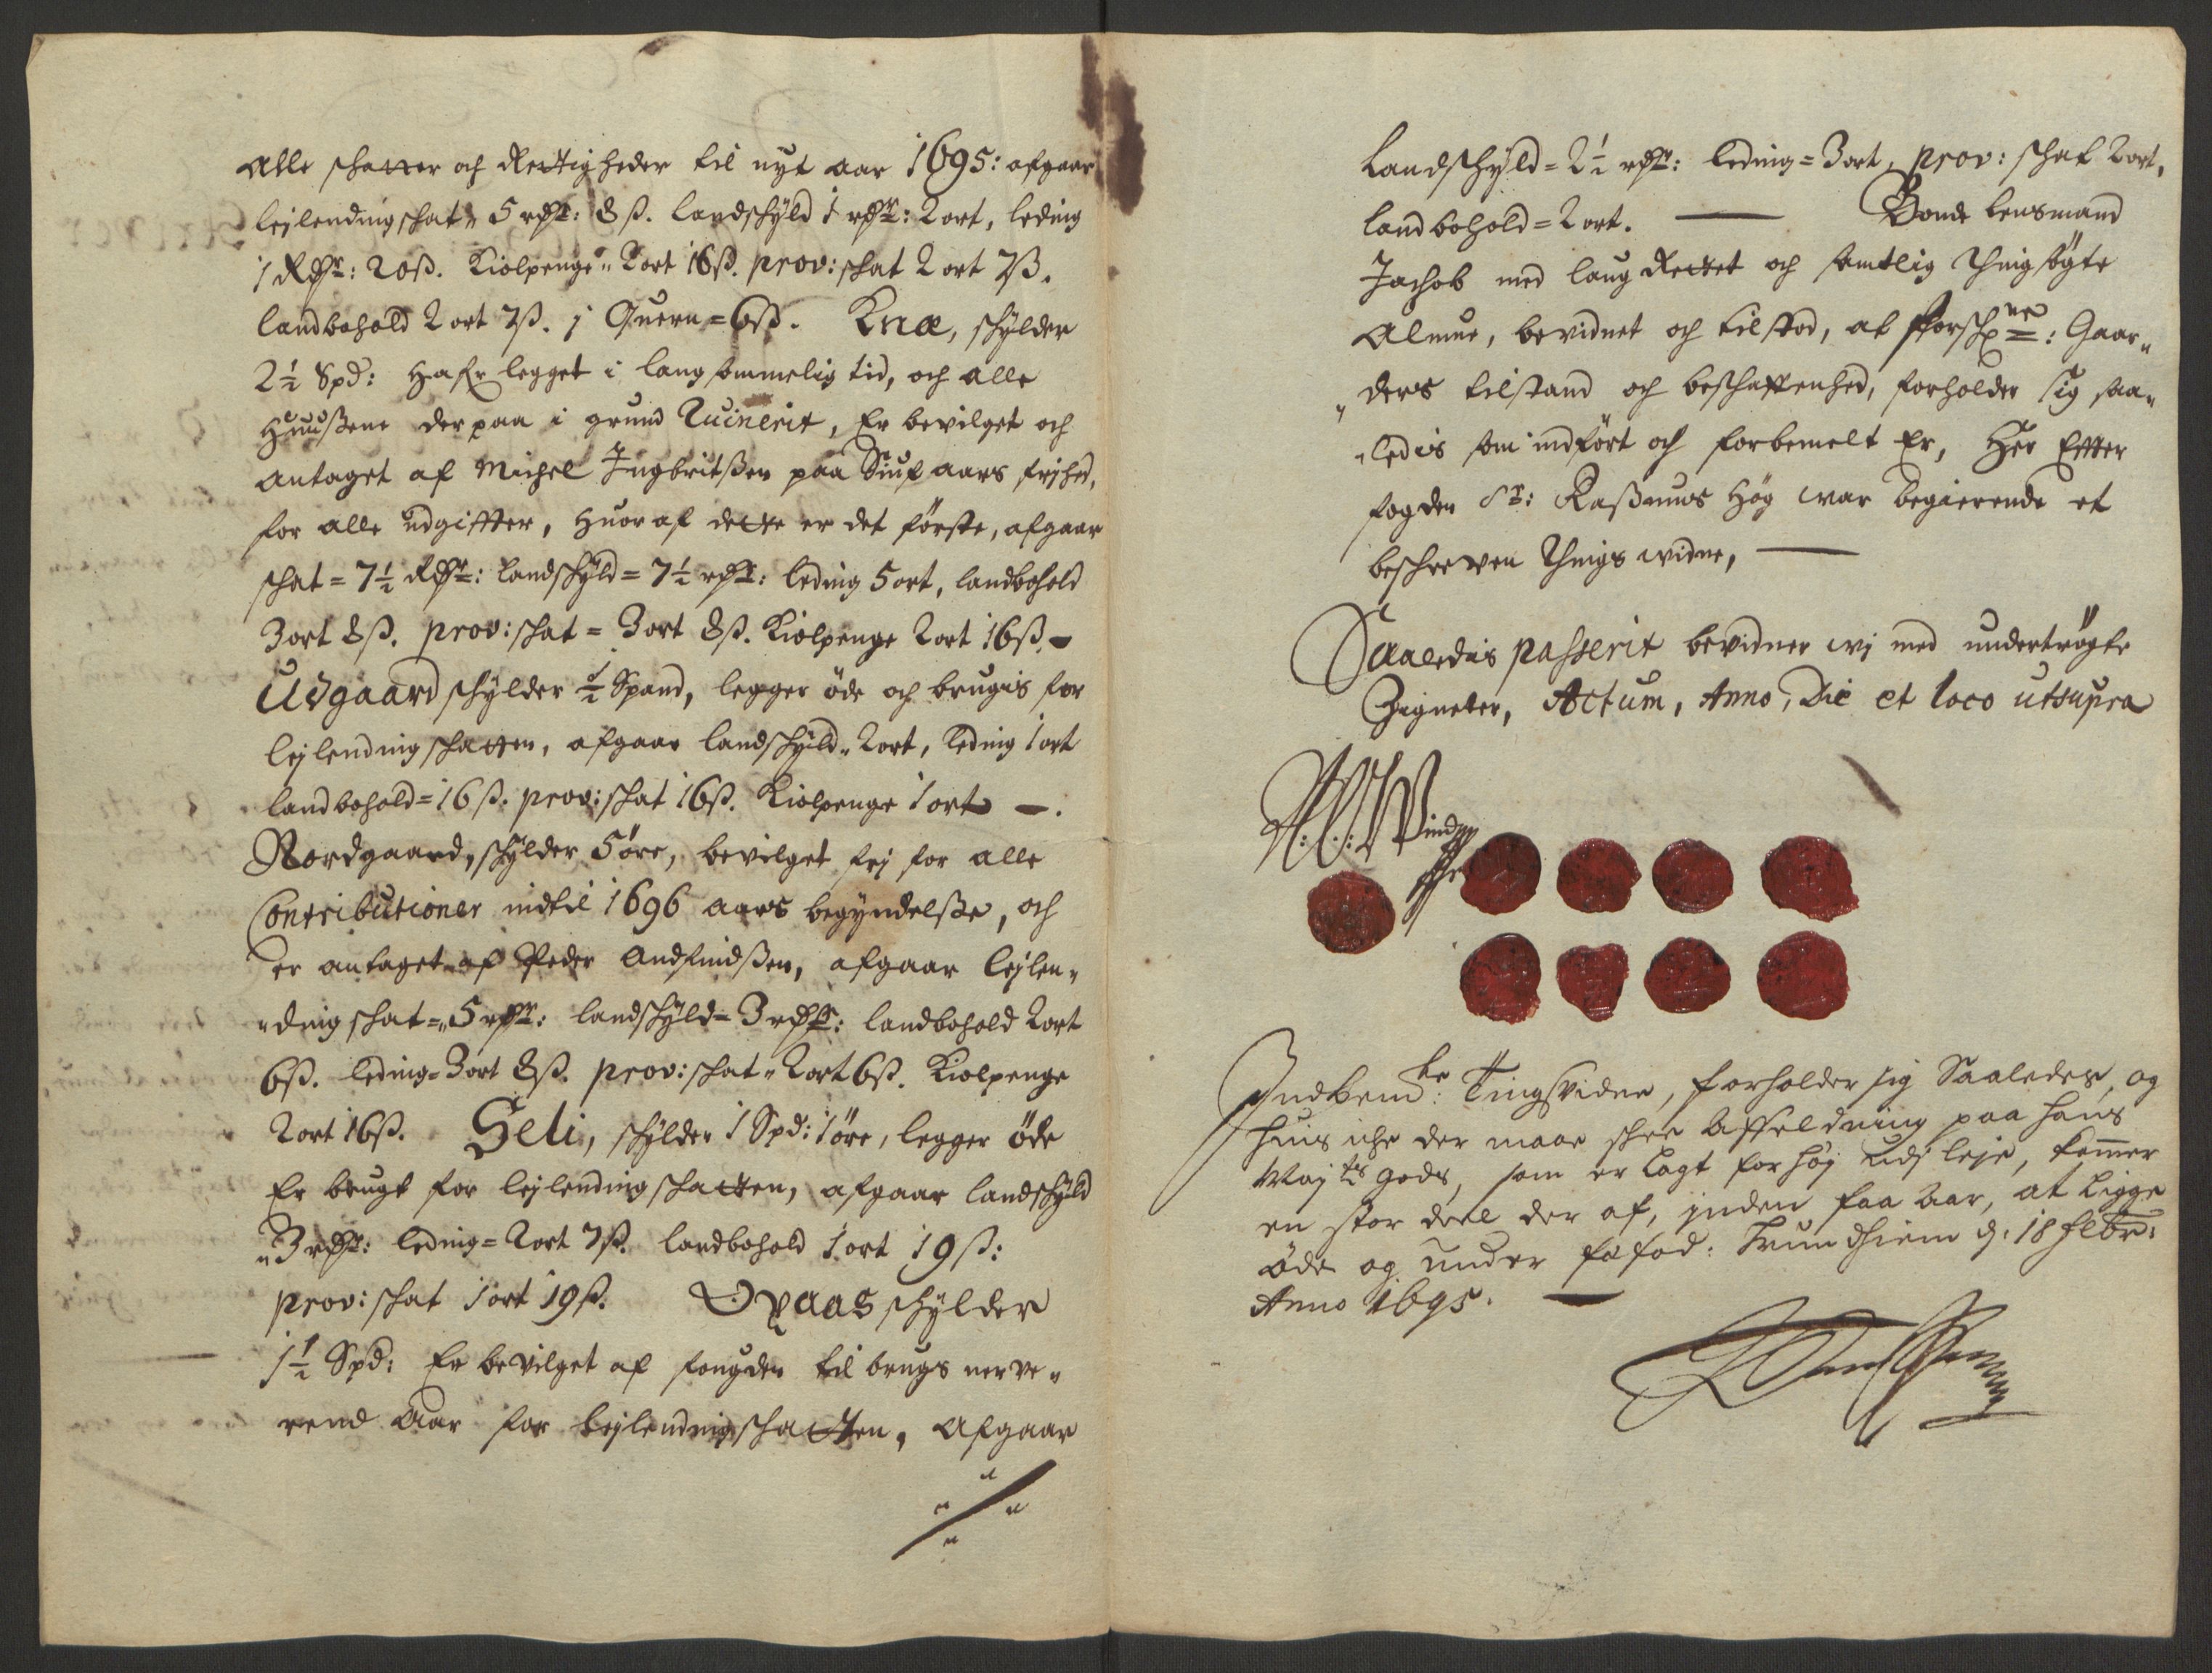 Alle schatter och Rettigheder til nyt aar 1695: afgaar
leylending schat " 5 rdr: 8 ß. landschyld 1 rdr: 2 ort, leding
1 Rdr: 20 ß. Kiolpenge " 2 ort 16 ß. prov: schat 2 ort 7 ß.
landbohold 2 ort 7 ß. 1 Quern = 6 ß. Knæ, schylder
2½ Spd: Hafr legget i langsommelig tid, och alle
Huußene der paa i grund Ruinerit, Er bevilget och
antaget af Michel Ingbritßen paa Siuf aars frihed,
for alle udgiffter, huor af dette er det förste, afgaar
schat = 7½ Rdr: landschyld = 7½ rdr: leding 5 ort, landbohold
3 ort 8 ß. prov: schat = 3 ort 8 ß. Kiolpenge 2 ort 16 ß. -
Udgaard schylder ½ Spand, legger öde och brugis for
leylending schatten, afgaar landschyld " 2 ort, leding 1 ort
landbohold = 16 ß. prov: schat 16 ß. Kiolpenge 1 ort -.
Nordgaard, schylder 5 öre, bevilget frj for alle
Contributioner indtil 1696 aars begyndelße, och
er antaget af Peder Andfindßen, afgaar leylen"
"ding schat = " 5 rdr: landschyld = 3 rdr: landbohold 2 ort
6 ß. leding = 3 ort 8 ß. prov: schat " 2 ort 6 ß. Kiolpenge
2 ort 16 ß. Seli, schylder 1 Spd: 1 öre, legger öde
Er brugt for leylending schatten, afgaar landschyld
" 3 rdr: leding = 2 ort 7 ß. landbohold 1 ort 19 ß:
prov: schat 1 ort 19 ß. Opaas schylder
1½ Spd: Er bevilget af fougden til brugs nerve"
rend Aar for leylending schatten, Afgaar
Landschyld = 2½ rdr: leding = 3 ort, prov: schat 2 ort,
landbohold = 2 ort. — Bonde lensmand
Jachob med laug Rettet och samtlig Thingsögte
Almue, bevidnet och tilstod, at forschne: Gaar"
"ders tilstand och beschaffenhed, forholder sig saa"
"ledis som indfört och forbemelt Er, Her Effter
fogden Sr: Raßmus Hög war begierende et
beschreven Things widne, —
Saaledis passerit bevidner wj med undertrögte
Zigneter, Actum, Anno, Die et loco utsupra
Indbemte: Tingsvidne, forholder sig Saaledes, og
huis iche der maar schee Affeldning paa hans
Mayts gods, som er lagt for höj udj leje, kommer
en stor deel der af, inden faa Aar, at ligge
öde og under fæfod: Trundhiem d: 18 Febr:
Anno 1695. —